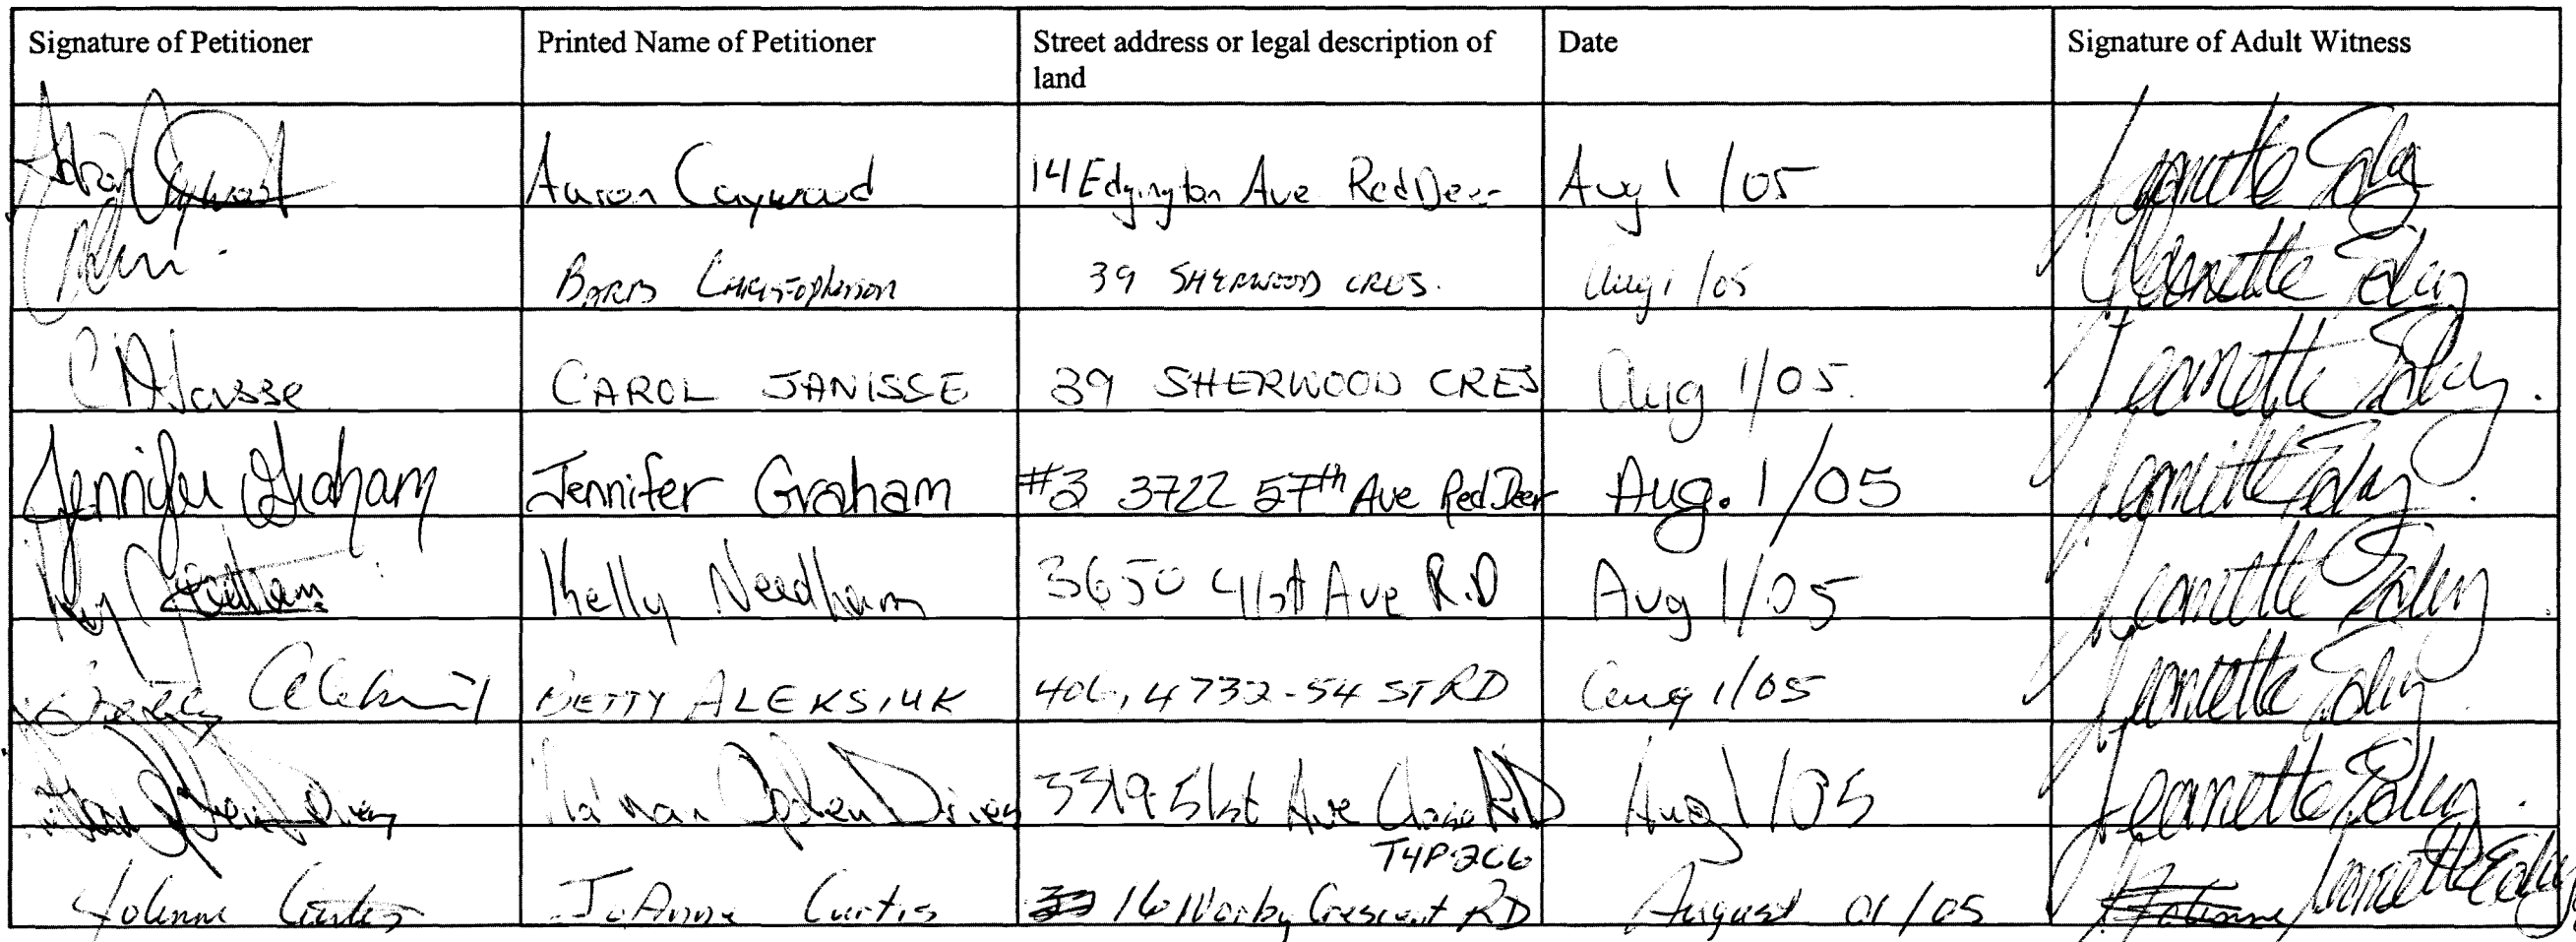 Signature of Petitioner Printed Name of Petitioner Street address or legal description of land Date Signature of Adult Witness
Aaron Caywood 14 Edgington Ave Red Deer Aug 1 /05 Jeannette
BARB CHRISTOPHERSON 39 SHERWOOD CRES. Aug 1 /05 Jeannette
CAROL JANISSE 39 SHERWOOD CRES Aug 1/05. Jeannette
Jennifer Graham Jennifer Graham #3 3722 57th Ave Red Deer Aug. 1/05 Jeannette
Needham Kelly Needham 3650 41st Ave R.D Aug 1/05 Jeannette
Betty BETTY ALEKSIUK 406, 4732-54 ST RD Aug 1/05 Jeannette
3319-51st Ave RD Aug 1/05 Jeannette
T4P 2C6
JoAnne Curtis JoAnne Curtis 16 Crescent RD August 01/05 Jeannette